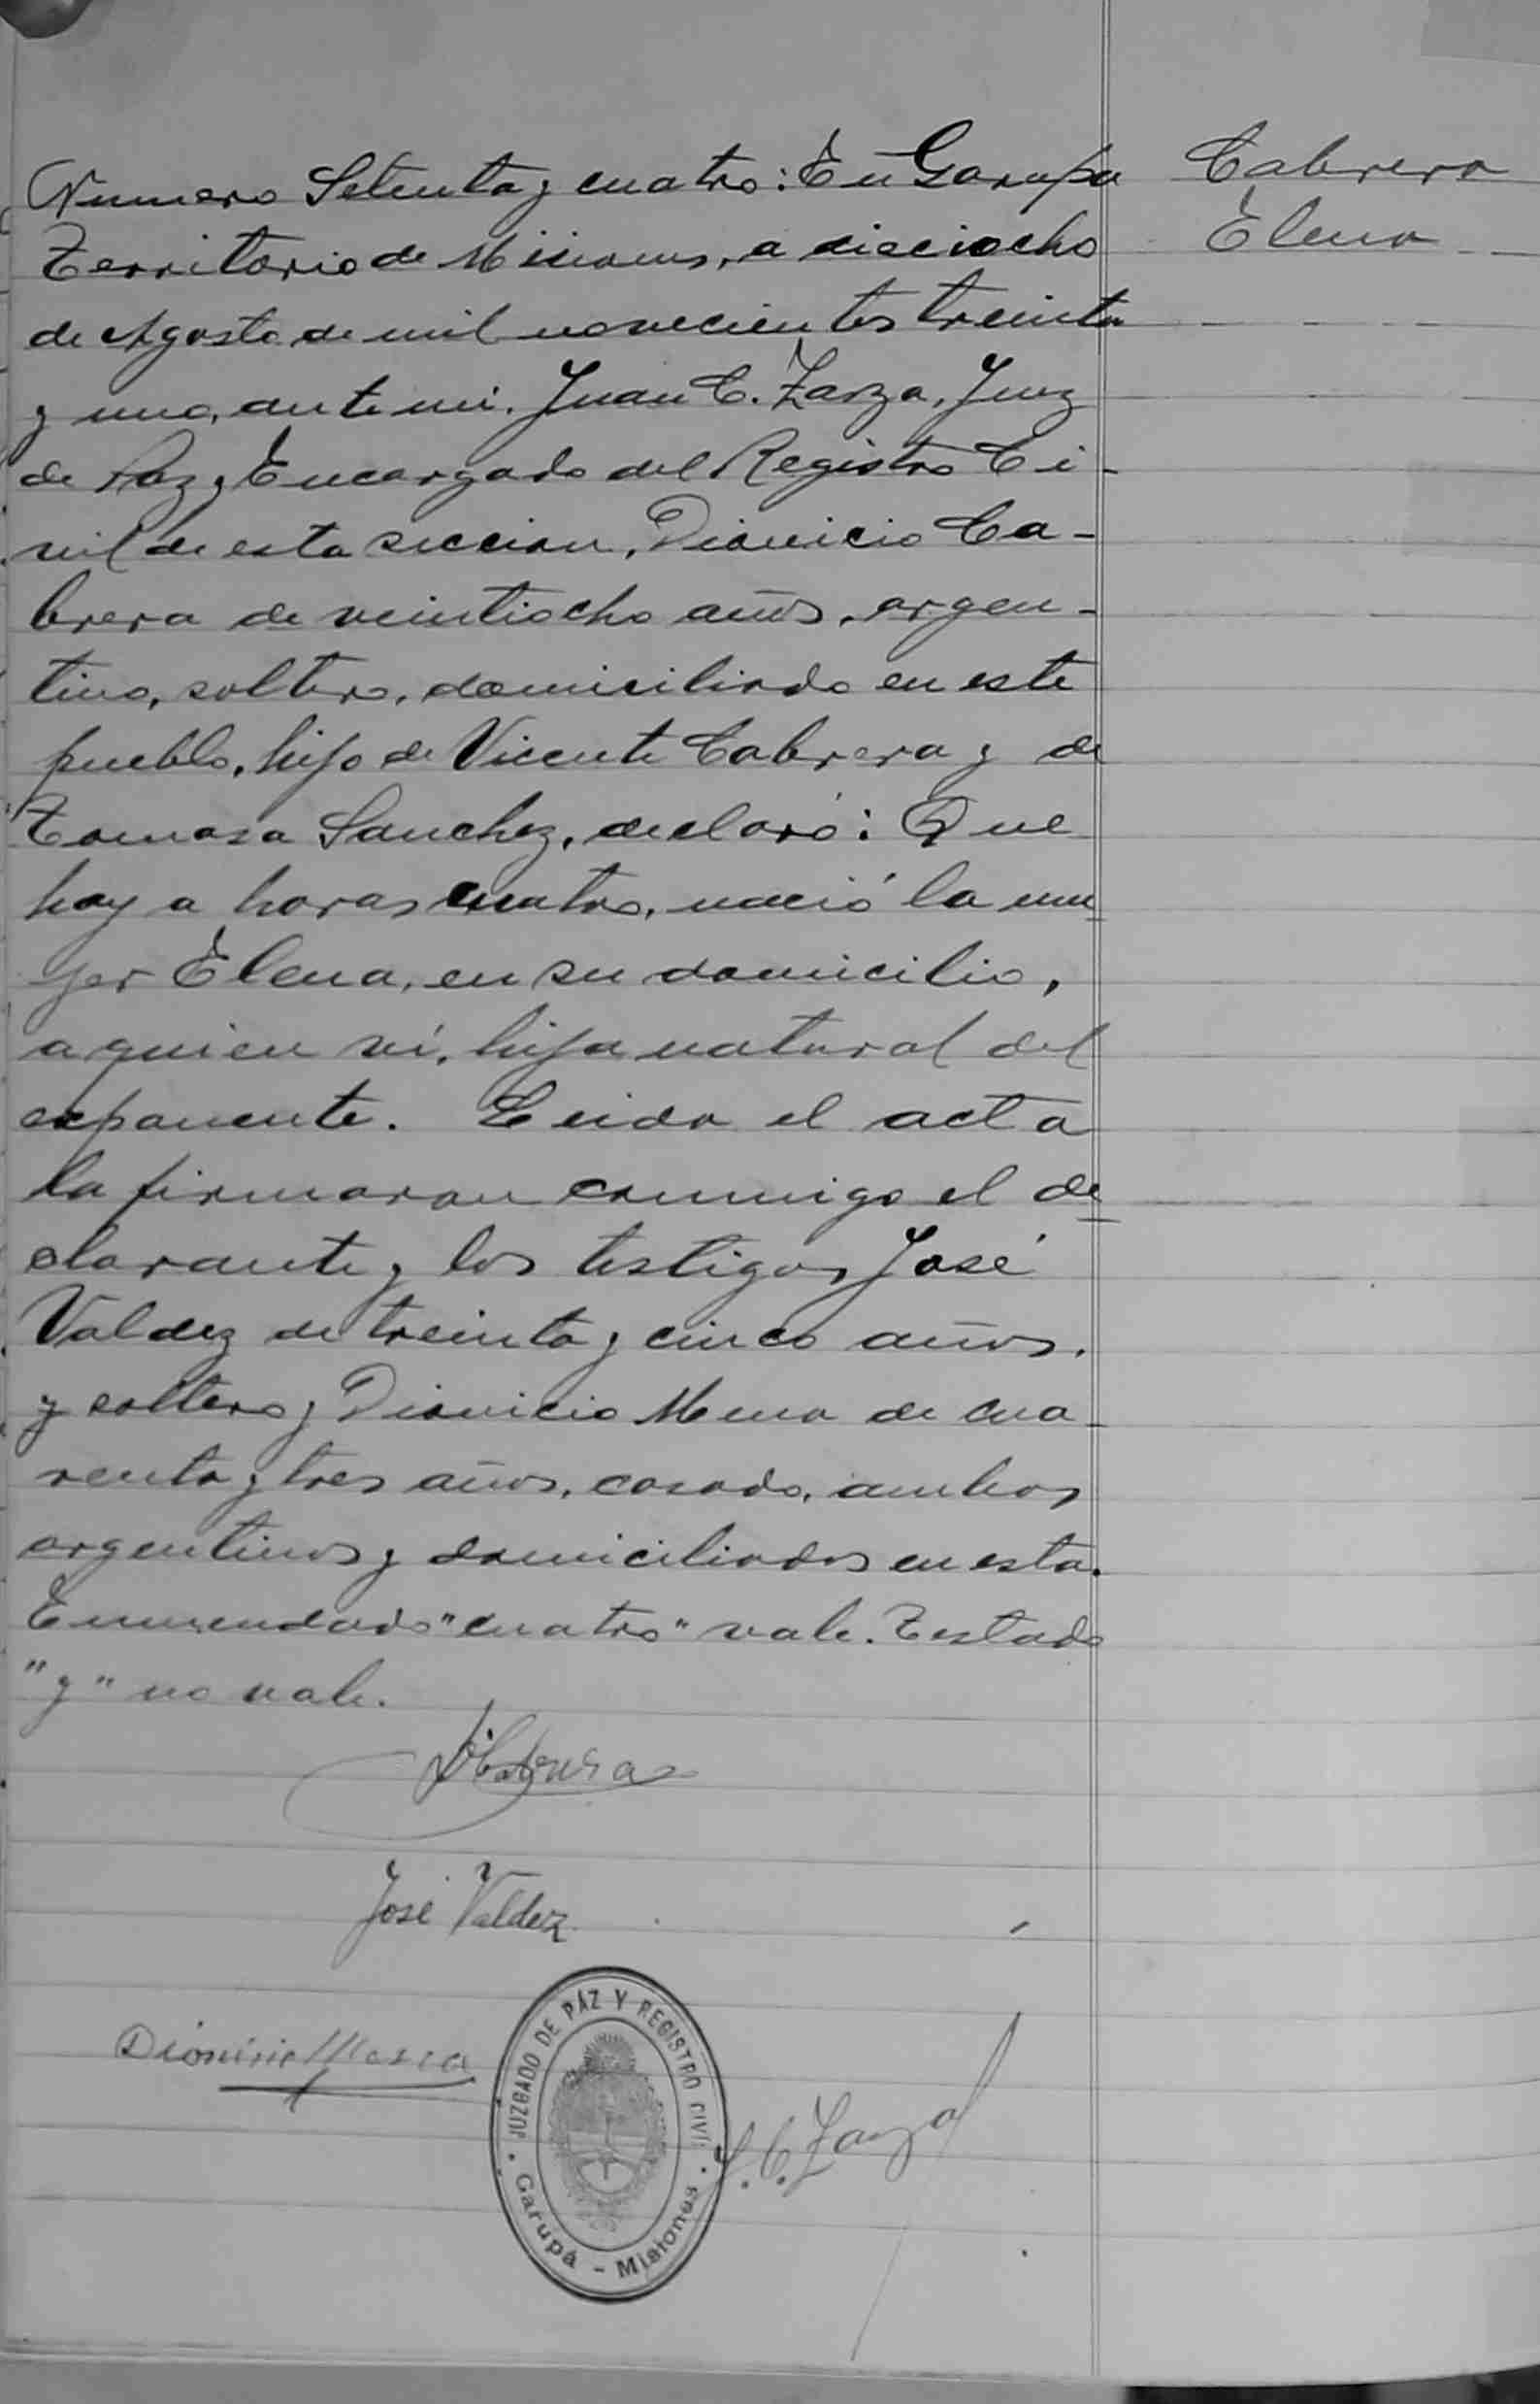 Numero Setenta y cuatro: En Garupa
Territorio de Misiones, a dieciocho
de Agosto de mil novecientos treinta
y uno, ante mi, Juan C. Zarza, Juez
de Paz y Encargado del Registro Ci-
vil de esta seccion, Dionicio Ca-
brera de veintiocho años, argen-
tino, soltero, domiciliado en este
pueblo, hijo de Vicente Cabrera y de
Tomasa Sanchez, declaró: Que
hoy a horas cuatro, nació la mu
jer Elena, en su domicilio,
a quien ví, hija natural del
exponente. Leida el acta
la firmaron conmigo el de
clarante y los testigos José
Valdez de treinta y cinco años,
y soltero y Dionicio Mena de cua-
renta y tres años, casado, ambos
argentinos y domiciliados en esta.
Enmendado "cuatro" vale. Testado
"y" no vale.
Cabrera
Elena
D. Cabrera
José Valdez
Dionisio Mena
JUZGADO DE PAZ Y REGISTRO CIVIL
Garupá - Misiones
J. C. Zarza